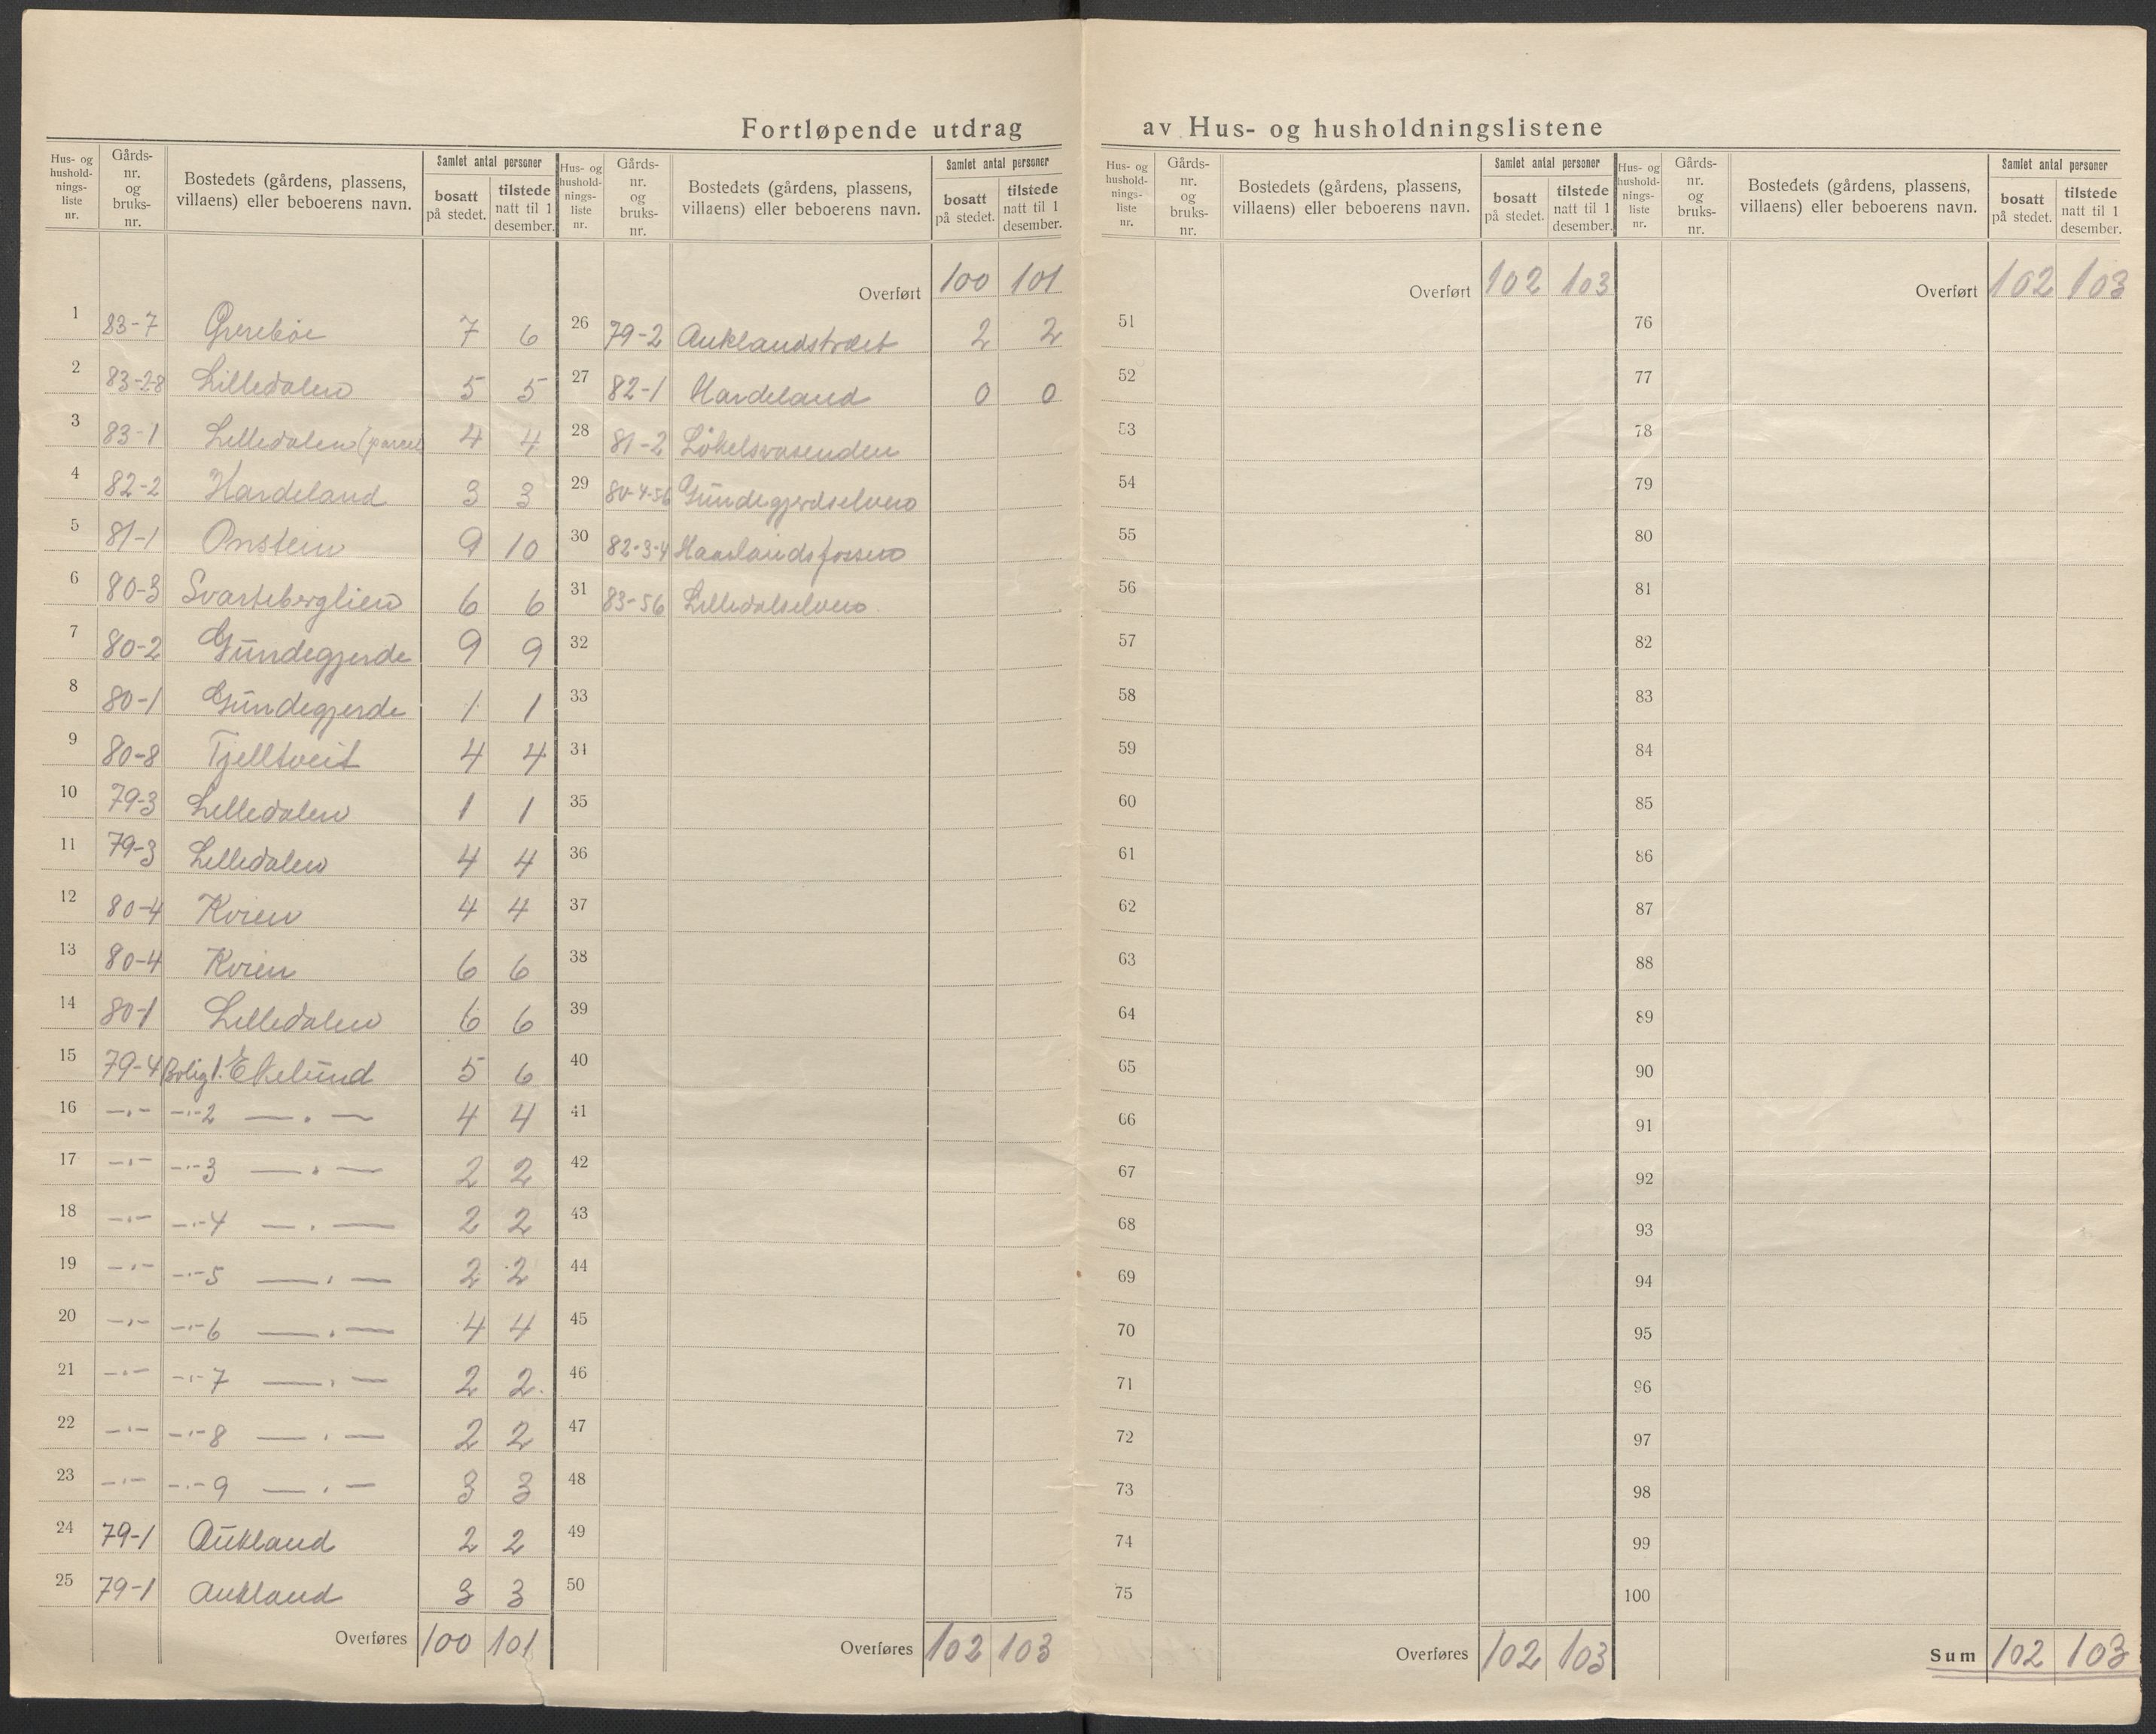 Fortløpende utdrag av Hus- og husholdningslistene
Hus- og hushold-nings-liste nr. | Gårds-nr. og bruks-nr. | Bostedets (gårdens, plassens, villaens) eller beboerens navn. | Samlet antal personer | bosatt på stedet. | tilstede natt til 1 desember.
1 83-7 7 6
2 83-2-8 Lilledalen 5 5
3 83-1 Lilledalen (parcel 4 4
4 82-2 Hardeland 3 3
5 81-1 Onstein 9 10
6 80-3 Svarteberglien 6 6
7 80-2 Gundegjerde 9 9
8 80-1 Gundegjerde 1 1
9 80-8 Tjelltveit 4 4
10 79-3 Lilledalen 1 1
11 79-3 Lilledalen 4 4
12 80-4 Kvien 4 4
13 80-4 Kvien 6 6
14 80-1 Lilledalen 6 6
15 79-4 Bolig 1. Ekelund 5 6
16 —"— —"— 2 —"— 4 4
17 —"— —"— 3 —"— 2 2
18 —"— —"— 4 —"— 2 2
19 —"— —"— 5 —"— 2 2
20 —"— —"— 6 —"— 4 4
21 —"— —"— 7 —"— 2 2
22 —"— —"— 8 —"— 2 2
23 —"— —"— 9 —"— 3 3
24 79-1 Aukland 2 2
25 79-1 Aukland 3 3
Overføres 100 101
Hus- og hushold-nings-liste nr. | Gårds-nr. og bruks-nr. | Bostedets (gårdens, plassens, villaens) eller beboerens navn. | Samlet antal personer | bosatt på stedet. | tilstede natt til 1 desember.
Overført 100 101
26 79-2 Auklandstræet 2 2
27 82-1 Hardeland 0 0
28 81-2 Løkelsvasenden
29 80-4-56 Gundegjerdselven
30 82-3-4 Haaslandsfossen
31 83-56 Lilledalselven
32
33
34
35
36
37
38
39
40
41
42
43
44
45
46
47
48
49
50
Overføres 102 103
Hus- og hushold-nings-liste nr. | Gårds-nr. og bruks-nr. | Bostedets (gårdens, plassens, villaens) eller beboerens navn. | Samlet antal personer | bosatt på stedet. | tilstede natt til 1 desember.
Overført 102 103
51
52
53
54
55
56
57
58
59
60
61
62
63
64
65
66
67
68
69
70
71
72
73
74
75
Overføres 102 103
Hus- og hushold-nings-liste nr. | Gårds-nr. og bruks-nr. | Bostedets (gårdens, plassens, villaens) eller beboerens navn. | Samlet antal personer | bosatt på stedet. | tilstede natt til 1 desember.
Overført 102 103
76
77
78
79
80
81
82
83
84
85
86
87
88
89
90
91
92
93
94
95
96
97
98
99
100
Sum 102 103